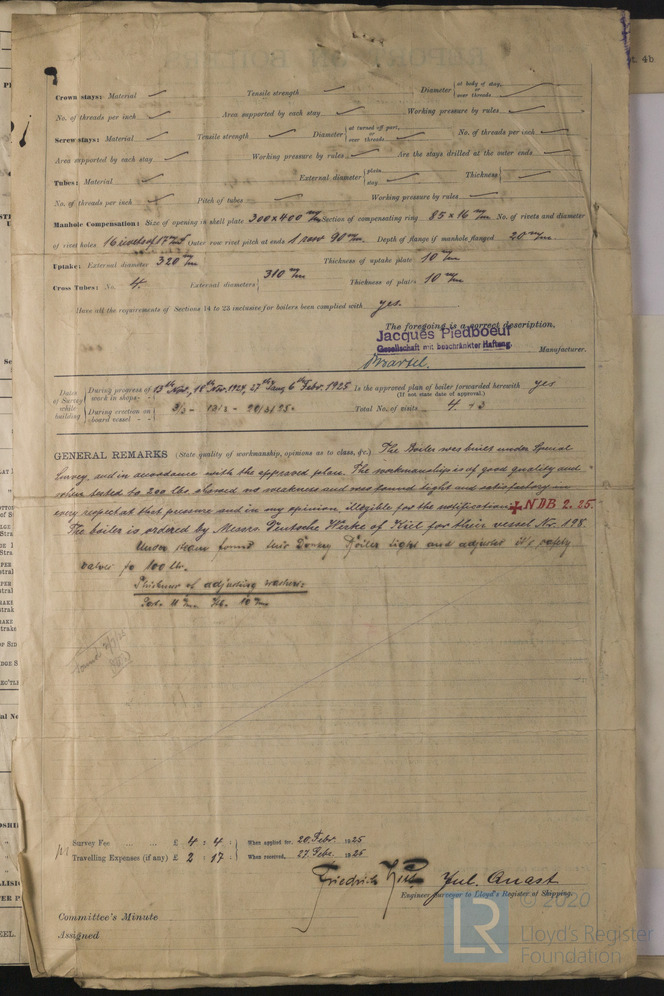 t. 4b
Crown stays: Material ✓ Tensile strength ✓ Diameter { at body of stay, or over threads ✓
No. of threads per inch ✓ Area supported by each stay ✓ Working pressure by rules ✓
Screw stays: Material ✓ Tensile strength ✓ Diameter { at turned off part, or over threads ✓ No. of threads per inch ✓
Area supported by each stay ✓ Working pressure by rules ✓ Are the stays drilled at the outer ends ✓
Tubes: Material ✓ External diameter { plain stay ✓ Thickness { ✓
No. of threads per inch ✓ Pitch of tubes ✓ Working pressure by rules ✓
Manhole Compensation: Size of opening in shell plate 300x400 m/m Section of compensating ring 85 x 16 m/m No. of rivets and diameter
of rivet holes 16 rivets of 17 m/m Outer row rivet pitch at ends 1 row 90 m/m Depth of flange if manhole flanged 20 m/m
Uptake: External diameter 320 m/m Thickness of uptake plate 10 m/m
Cross Tubes: No. 4. External diameters { 310 m/m Thickness of plates 10 m/m
Have all the requirements of Sections 14 to 22 inclusive for boilers been complied with yes.
The foregoing is a correct description,
Jacques Piedboeuf
Gesellschaft mit beschränkter Haftung. Manufacturer.
Dates of Survey while building { During progress of work in shops - - 13th Nov, 18th Nov. 1924, 27th Jany, 6th Febr. 1925 Is the approved plan of boiler forwarded herewith yes
(If not state date of approval.)
During erection on board vessel - - - 20/3/25. Total No. of visits 4 + 3
GENERAL REMARKS (State quality of workmanship, opinions as to class, &c.) The Boiler was built under Special
Survey, and in accordance with the approved plan. The workmanship is of good quality and
when tested to 200 lbs. showed no weakness and was found tight and satisfactory in
every respect at that pressure and in my opinion, eligible for the notification ✠ NDB 2.25.
The boiler is ordered by Messrs. Deutsche Werke of Kiel for their vessel No. 198.
Under steam found this Donkey Boiler tight and adjusted it's safety
valves to 100 lbs.
Thickness of adjusting washers:
Port. 11 m/m Stb. 10 m/m
Survey Fee ... ... £ 4 : 4 : When applied for, 20. Febr. 1925
Travelling Expenses (if any) £ 2 : 17 : When received, 27. Febr. 1925
Friedrich Jul. Anast
Engineer Surveyor to Lloyd's Register of Shipping.
Committee's Minute
Assigned
LR © 2020
Lloyd's Register
Foundation